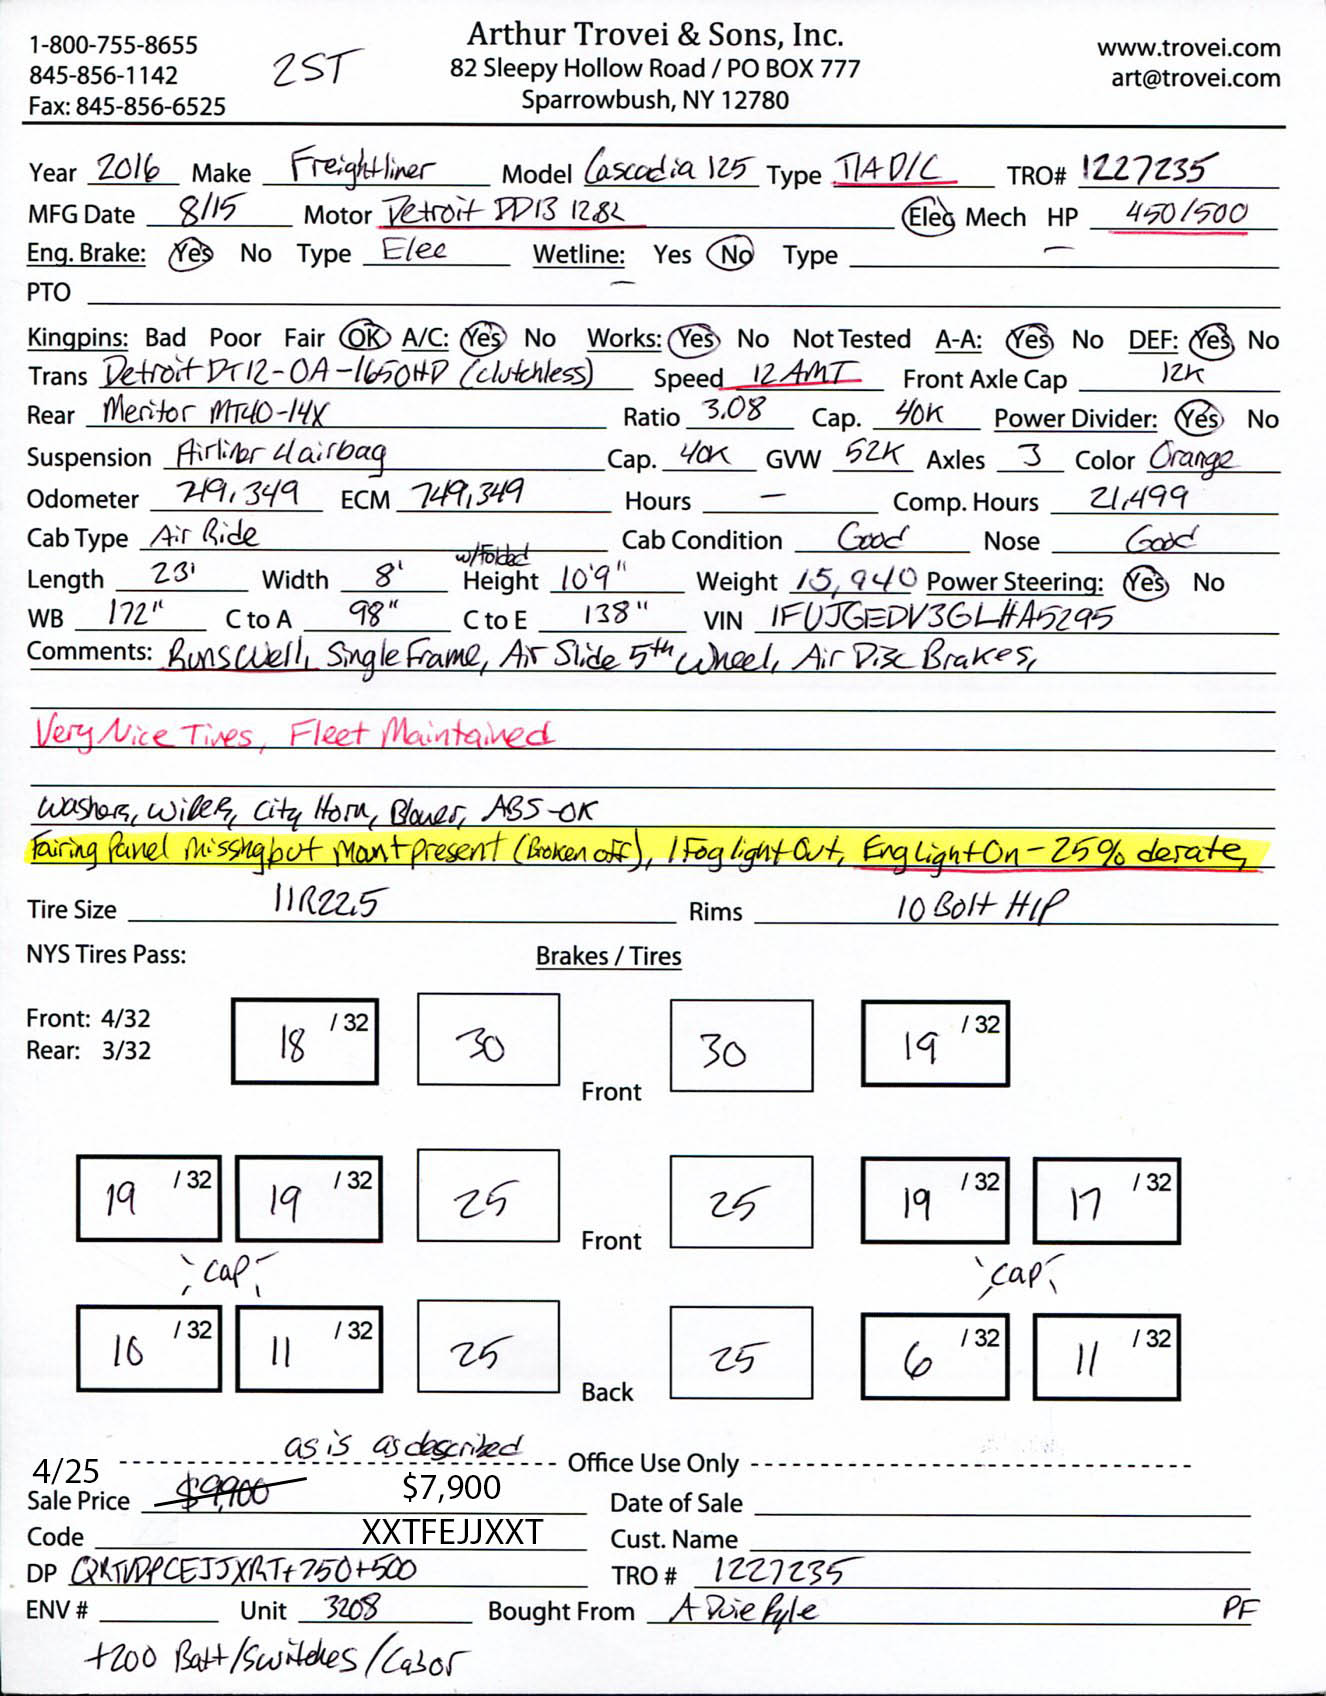 Arthur Trovei & Sons, Inc.
1-800-755-8655
845-856-1142
Fax: 845-856-6525
2ST
82 Sleepy Hollow Road / PO BOX 777
Sparrowbush, NY 12780
www.trovei.com
art@trovei.com
Year 2016 Make Freightliner Model Cascadia 125 Type T/A D/C TRO# 1227235
MFG Date 8/15 Motor Detroit DD13 12.8L Elec Mech HP 450/500
Eng. Brake: Yes No Type Elec Wetline: Yes No Type —
PTO —
Kingpins: Bad Poor Fair OK A/C: Yes No Works: Yes No Not Tested A-A: Yes No DEF: Yes No
Trans Detroit DT12-OA-1650HD (clutchless) Speed 12 AMT Front Axle Cap 12K
Rear Meritor MT40-14X Ratio 3.08 Cap. 40K Power Divider: Yes No
Suspension Airliner 4 airbag Cap. 40K GVW 52K Axles 3 Color Orange
Odometer 749,349 ECM 749,349 Hours — Comp. Hours 21,499
Cab Type Air Ride Cab Condition Good Nose Good
w/Folded
Length 23' Width 8' Height 10'9" Weight 15,940 Power Steering: Yes No
WB 172" C to A 98" C to E 138" VIN 1FUJGEDV3GLHA5295
Comments: Runs Well, Single Frame, Air Slide 5th Wheel, Air Disc Brakes,
Very Nice Tires, Fleet Maintained
Washers, Wipers, City Horn, Blower, ABS-OK
Fairing Panel missing but mount present (Broken off), 1 Fog light Out, Eng Light On - 25% derate,
Tire Size 11R22.5 Rims 10 Bolt H/P
NYS Tires Pass: Brakes / Tires
Front: 4/32
Rear: 3/32
18 /32 30 Front 30 19 /32
19 /32 19 /32 25 Front 25 19 /32 17 /32
cap cap
10 /32 11 /32 25 Back 25 6 /32 11 /32
as is as described
Office Use Only
4/25
Sale Price $9,900 $7,900 Date of Sale
Code XXTFEJJXXT Cust. Name
DP QRTVDPCEJJXRT+750+500 TRO # 1227235
ENV # Unit 3208 Bought From A Duie Pyle PF
+200 Batt/Switches/Labor